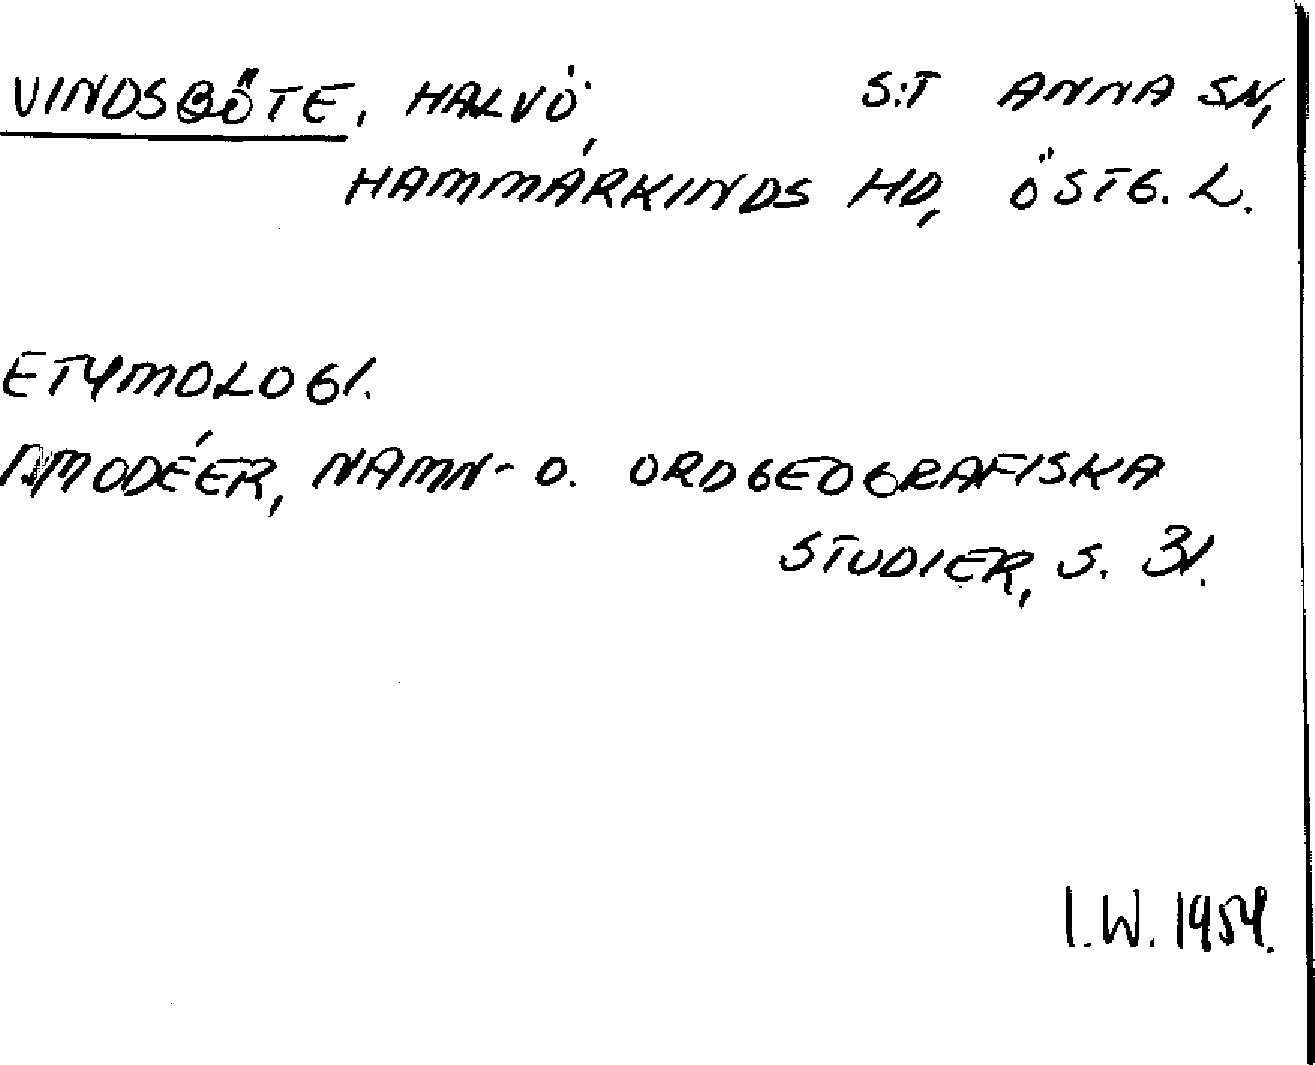 VINDSBÖTE, HALVÖ, S:T ANNA SN,
HAMMARKINDS HD, ÖSTG. L.
ETYMOLOGI.
MODÉER, NAMN- O. ORDGEOGRAFISKA
STUDIER, S. 31.
I.W. 1954.